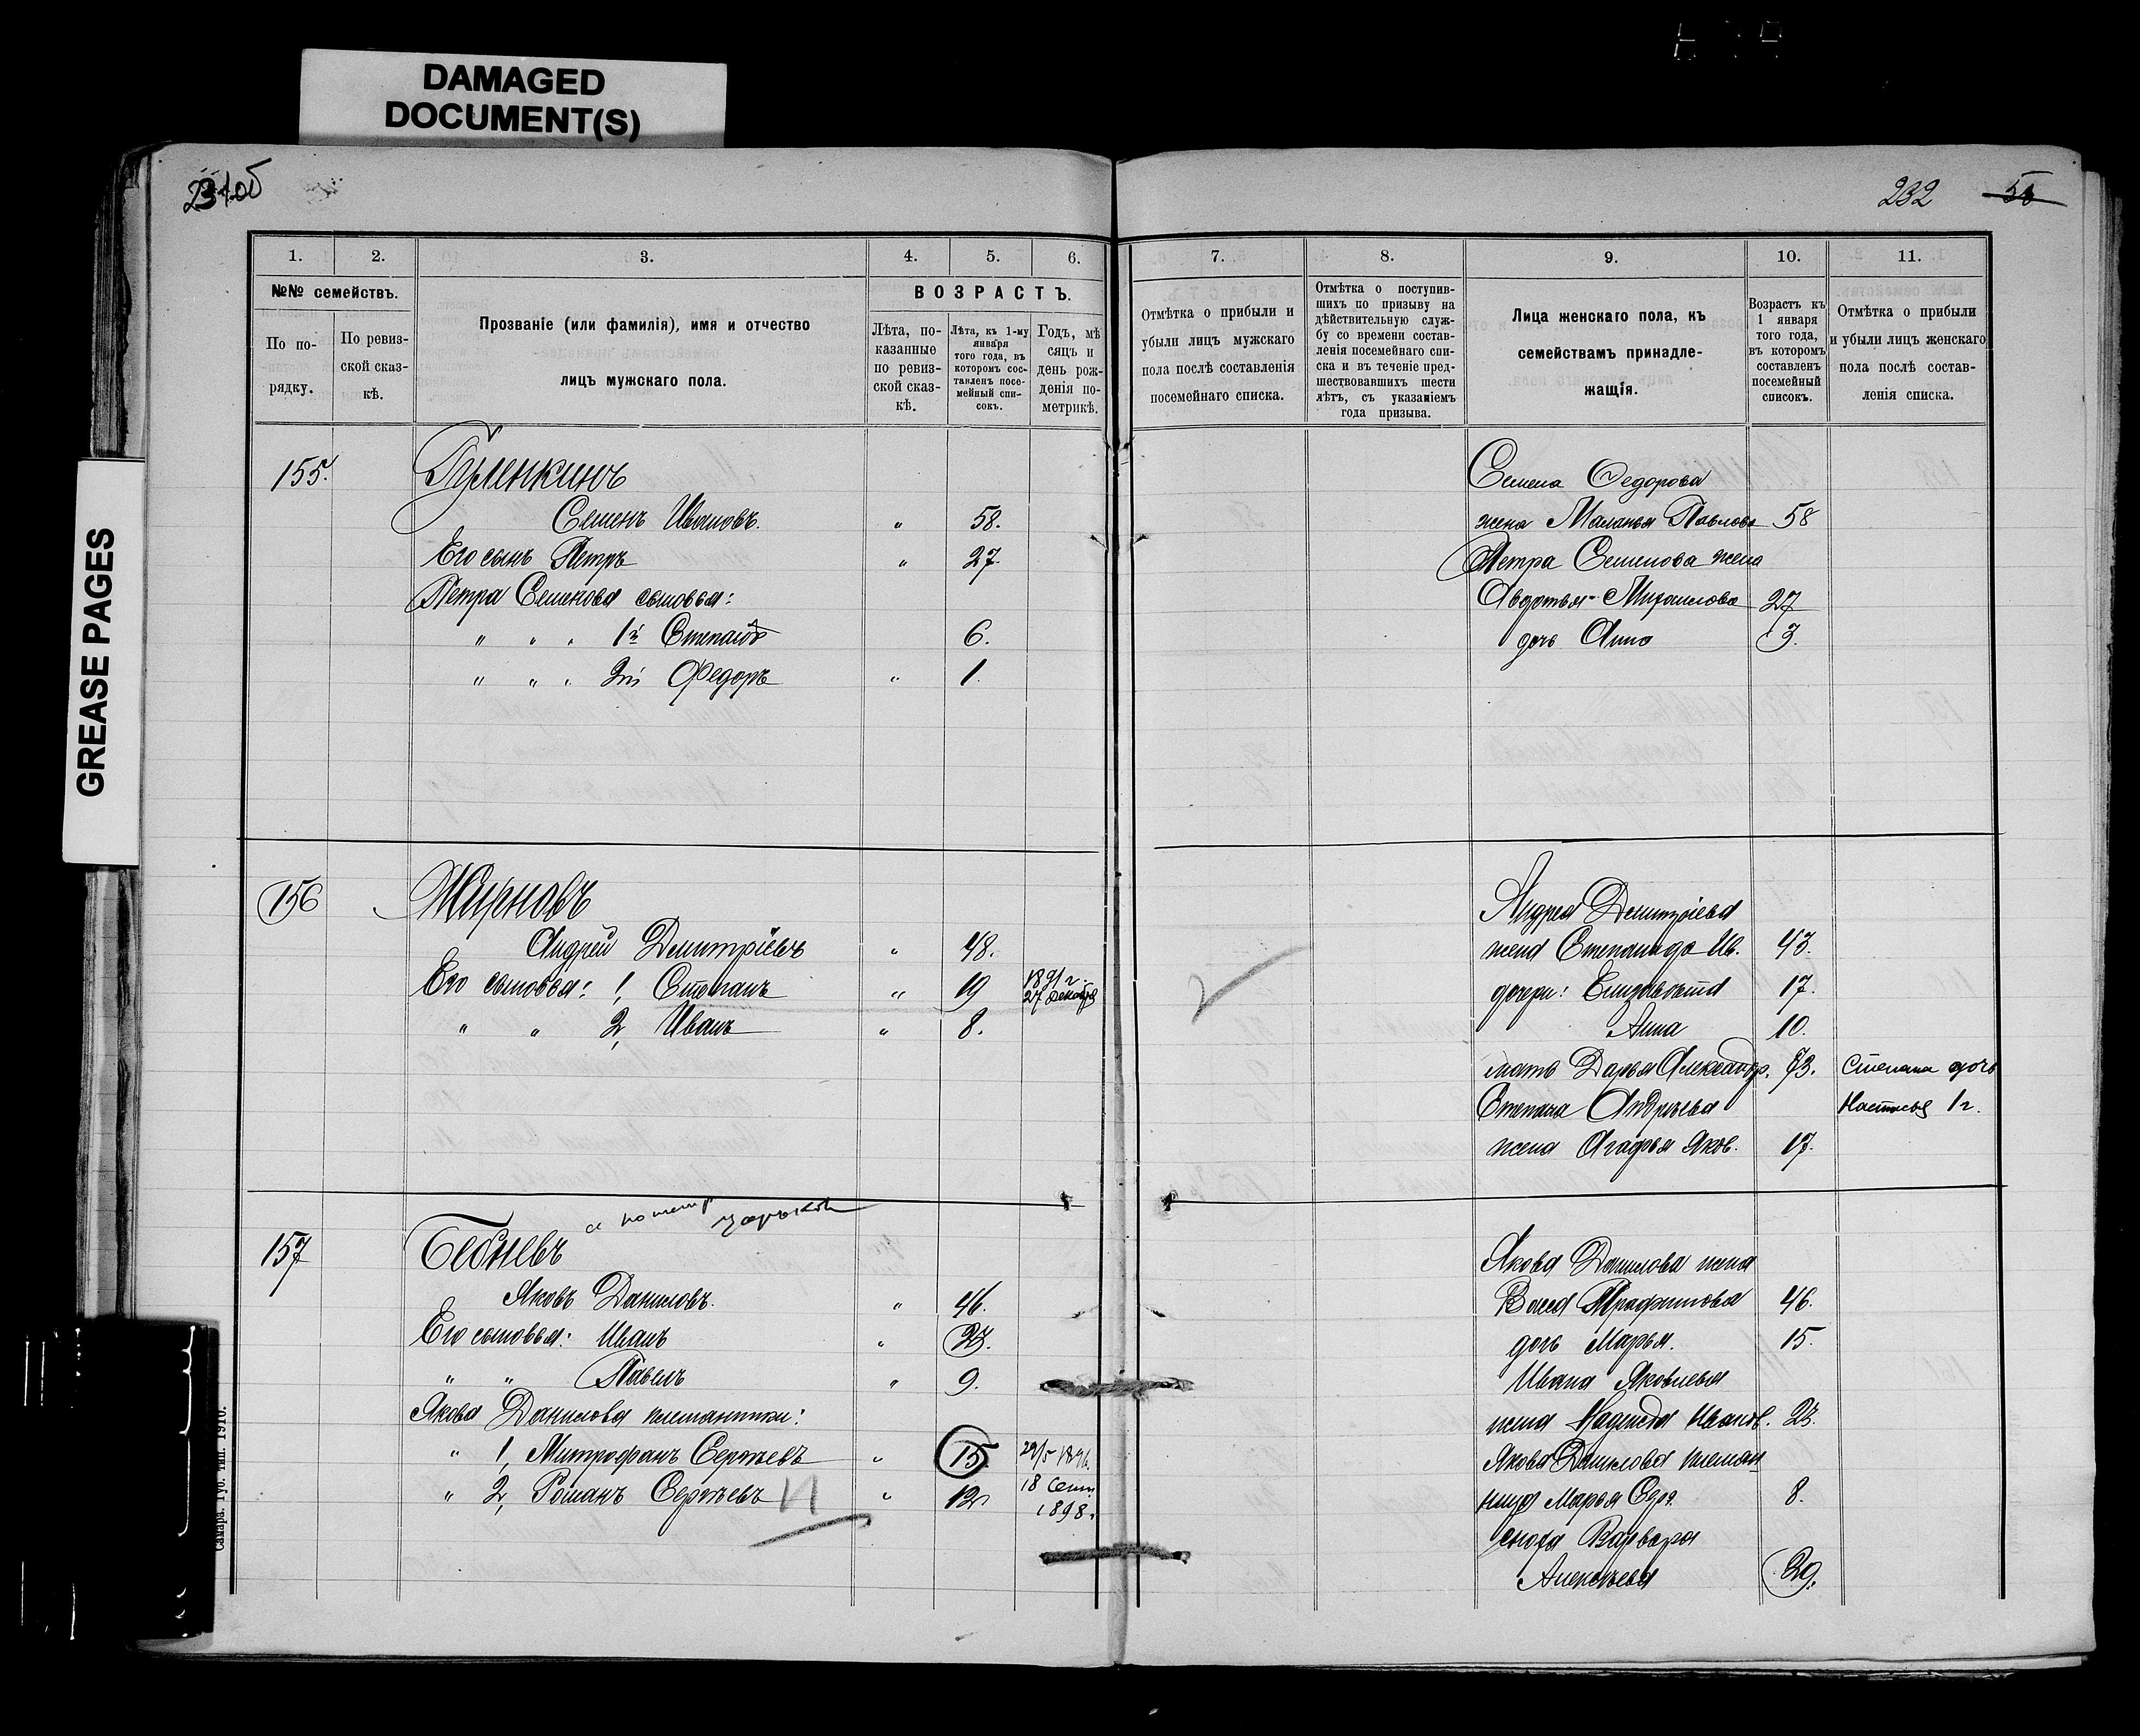 DAMAGED
DOCUMENT(S)
GREASE PAGES
231об
232 58
1. 2. 3. 4. 5. 6.
№№ семействъ.
По по-
рядку.
По ревиз-
ской сказ-
кѣ.
Прозваніе (или фамилія), имя и отчество
лицъ мужскаго пола.
ВОЗРАСТЪ.
Лѣта, по-
казанные
по ревиз-
ской сказ-
кѣ.
Лѣта, къ 1-му
января
того года, въ
которомъ сос-
тавленъ посе-
мейный спи-
сокъ.
Годъ, мѣ
сяцъ и
день рож-
денія по-
метрикѣ.
155.
Гуленкинъ
Семенъ Ивановъ. " 58.
Его сынъ Петръ " 27.
Петра Семенова сыновья:
" " " 1й Степанъ 6.
" " " 2й Федоръ " 1.
156
Жирновъ
Андрей Дмитріевъ " 48.
Его сыновья: 1, Степанъ " 19 1891 г
27 декабря
" " 2, Иванъ " 8.
157
Бебневъ
Яковъ Даниловъ. " 46.
Его сыновья: Иванъ " 23.
" " Павелъ " 9.
Якова Данилова племянники:
" 1, Митрофанъ Сергѣевъ " 15.
" 2, Романъ Сергѣевъ " 12 18 Сент
1898.
Самара. Губ. тип. 1910.
7. 8. 9. 10. 11.
Отмѣтка о прибыли и
убыли лицъ мужскаго
пола послѣ составленія
посемейнаго списка.
Отмѣтка о поступив-
шихъ по призыву на
дѣйствительную служ-
бу со времени состав-
ленія посемейнаго спи-
ска и въ теченіе пред-
шествовавшихъ шести
лѣтъ, съ указаніемъ
года призыва.
Лица женскаго пола, къ
семействамъ принадле-
жащія.
Возрастъ къ
1 января
того года,
въ которомъ
составленъ
посемейный
списокъ.
Отмѣтка о прибыли
и убыли лицъ женскаго
пола послѣ состав-
ленія списка.
Семена Федорова
жена Маланья Павлова 58
Петра Семенова жена
Авдотья Михаилова 27
дочь Анна 3.
Андрея Дмитріева
жена Степанида Ив. 43.
дочери: Елизавета 17.
Анна 10.
мать Дарья Александр. 73. Степана дочь
Степана Андреева Настасья 1 г.
жена Агафья Яков. 17.
Якова Данилова жена
46.
дочь Марья. 15.
Ивана Яковлева
жена Надежда Иванов. 23.
Якова Данилова племян
ница Марья Серг. 8.
сноха Варвара
Алексѣева 29.